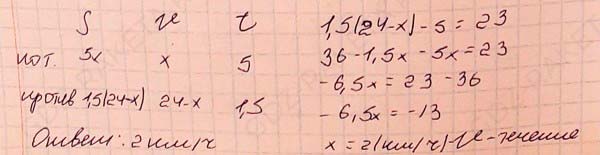 S v t
пот. 5x x 5
против 1,5(24-x) 24-x 1,5
Ответ: 2 км/ч
1,5(24-x)-5 = 23
36-1,5x-5x=23
-6,5x = 23-36
-6,5x = -13
x = 2(км/ч) v-течение